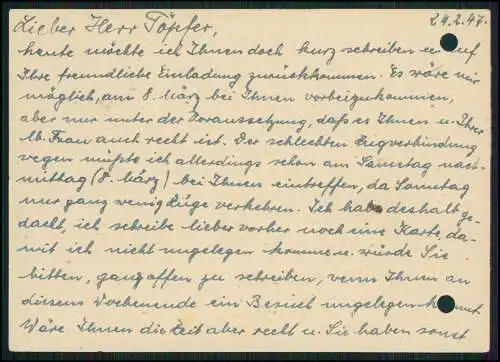 Lieber Herr Töpfer, 24.2.47.
heute möchte ich Ihnen doch kurz schreiben u. auf
Ihre freundliche Einladung zurückkommen. Es wäre mir
möglich, am 8. März bei Ihnen vorbeizukommen,
aber nur unter der Voraussetzung, daß es Ihnen u. Ihrer
lb. Frau auch recht ist. Der schlechten Zugverbindung
wegen müßte ich allerdings schon am Samstag nach-
mittag (8. März) bei Ihnen eintreffen, da Sonntag
nur ganz wenig Züge verkehren. Ich habe deshalb ge-
dacht, ich schreibe lieber vorher noch eine Karte, da-
mit ich nicht ungelegen komme u. würde Sie
bitten, ganz offen zu schreiben, wenn Ihnen an
diesem Wochenende ein Besuch ungelegen kommt.
Wäre Ihnen die Zeit aber recht u. Sie haben sonst